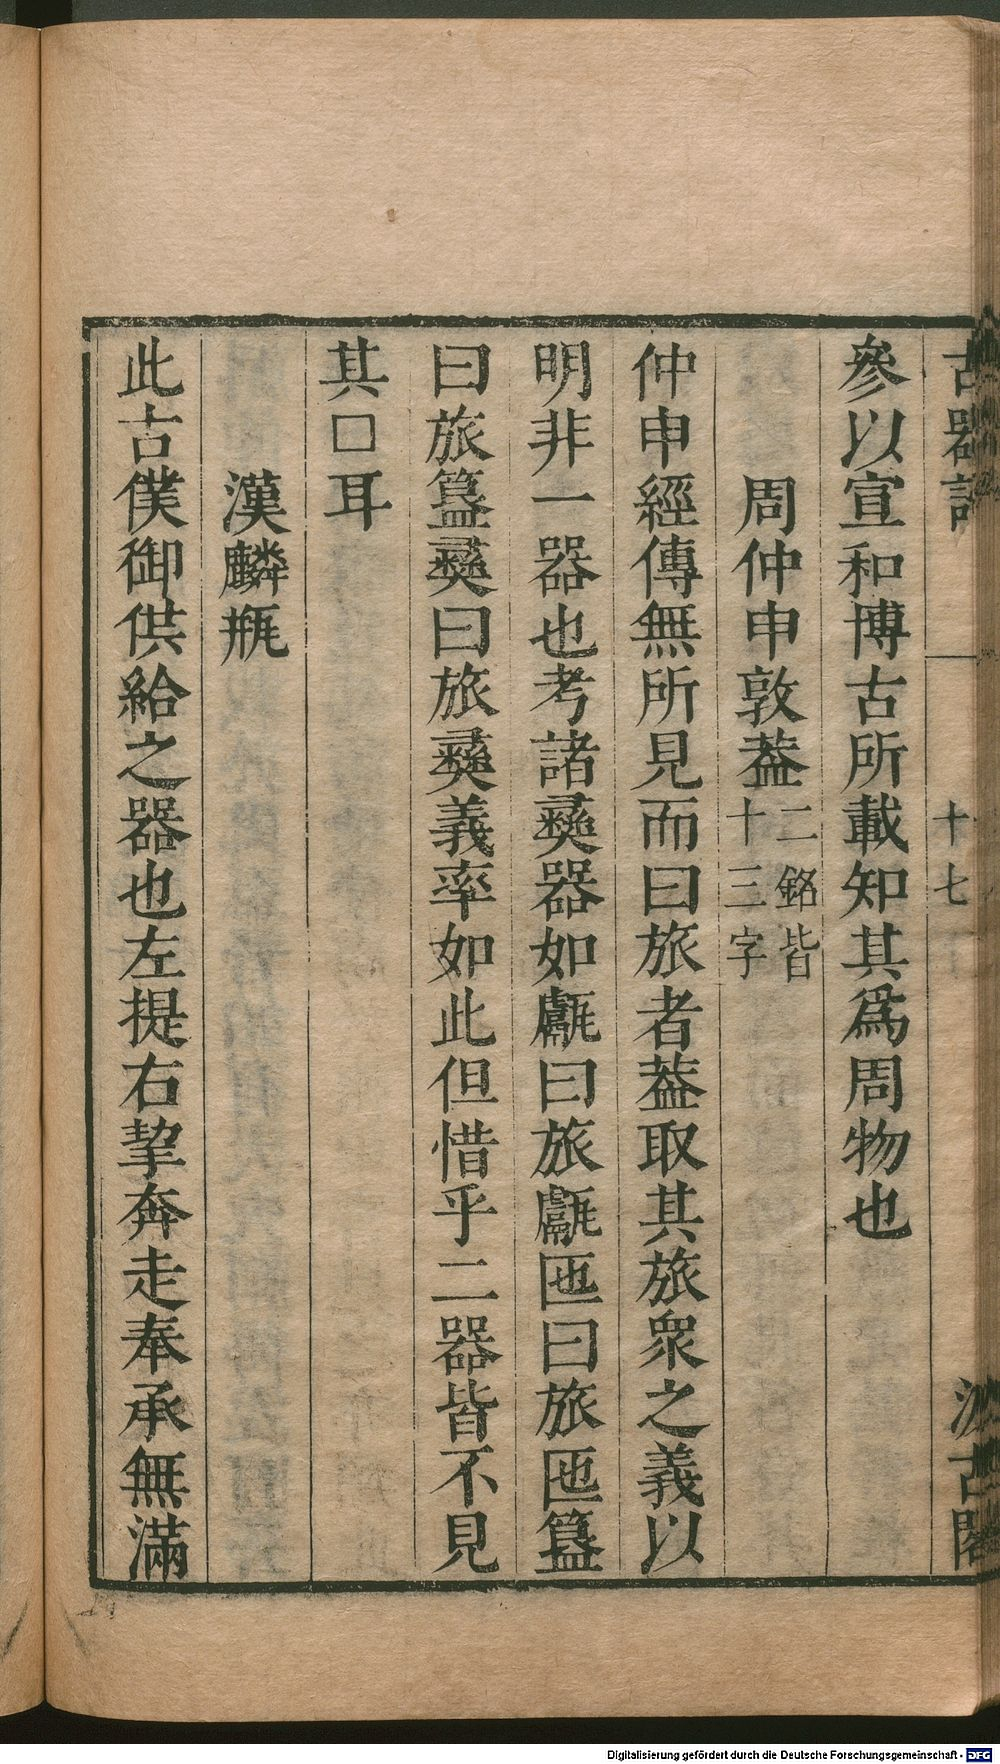 古器記 十七 汲古閣
參以宣和博古所載知其爲周物也
周仲申敦葢二銘皆十三字
仲申經傳無所見而曰旅者葢取其旅衆之義以
明非一器也考諸彞器如甗曰旅甗匜曰旅匜簋
曰旅簋彞曰旅彞義率如此但惜乎二器皆不見
其□耳
漢麟瓶
此古僕御供給之器也左提右挈奔走奉承無滿
Digitalisierung gefördert durch die Deutsche Forschungsgemeinschaft - DFG